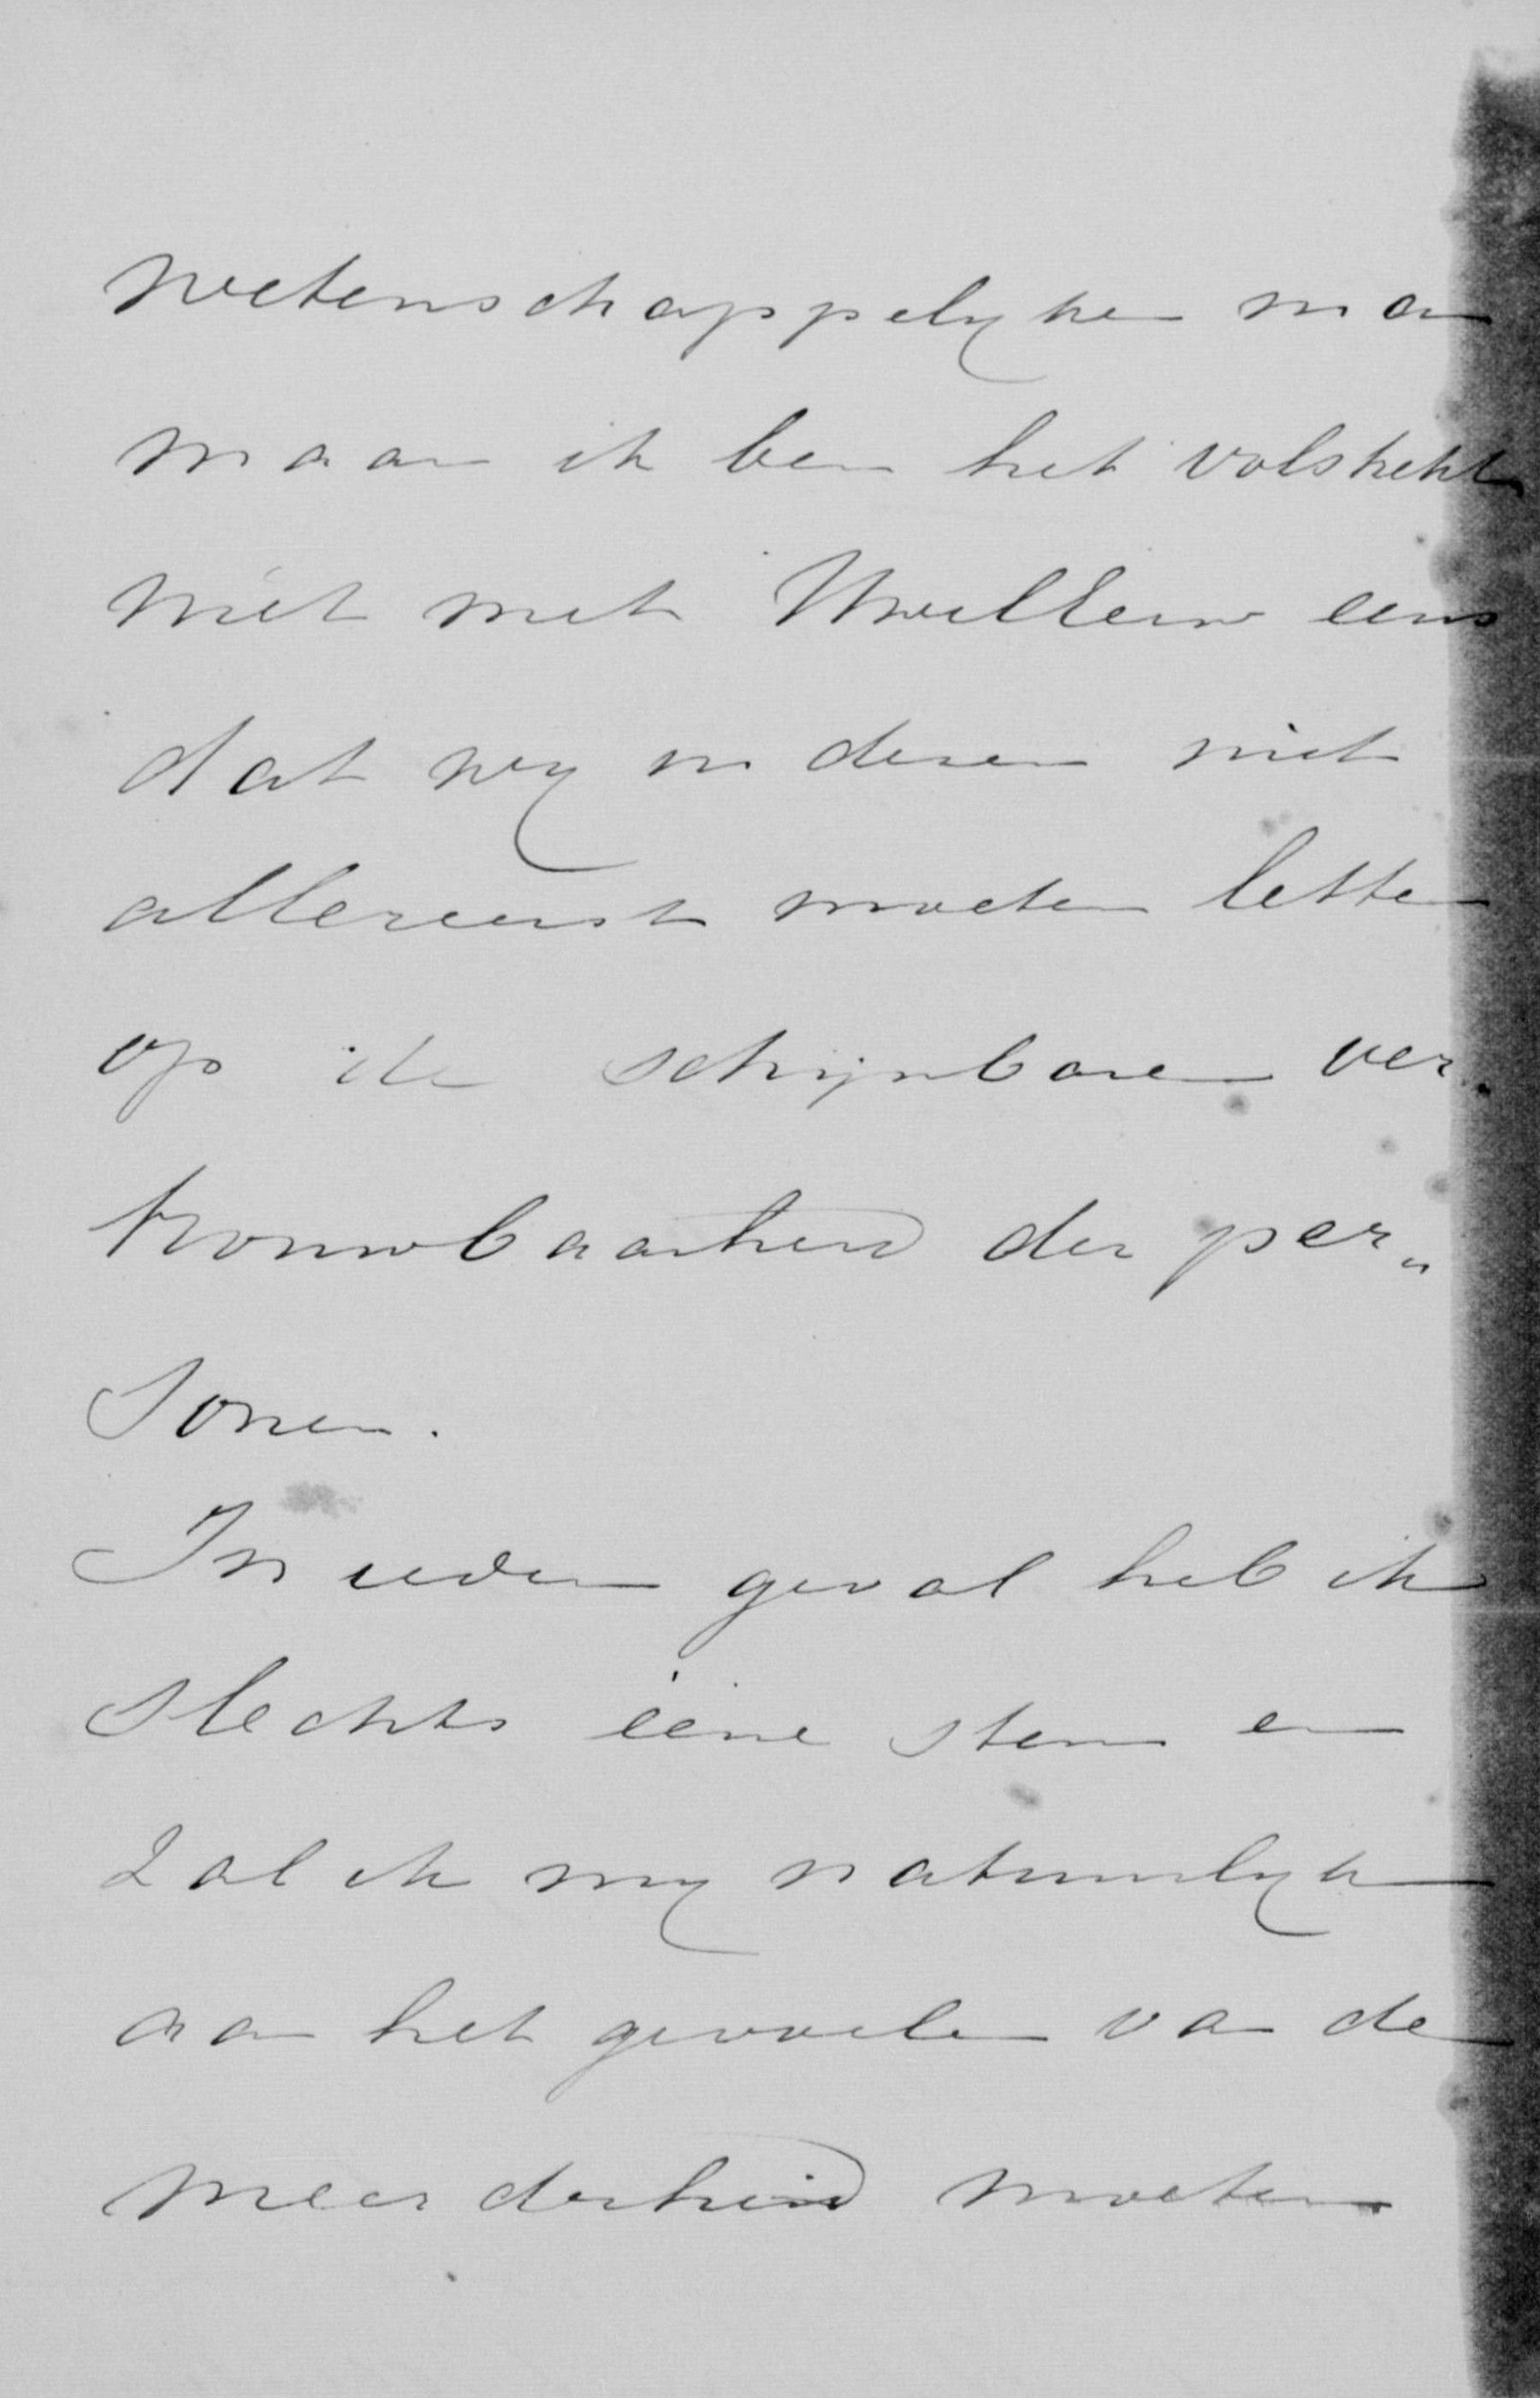 wetenschappelyken man
maar ik ben het volstrekt
niet met UwelEerw eens
dat wy in dezen niet
allereerst moeten letten
op de schijnbare ver„
trouwbaarheid der per„
sonen.
In ieder geval heb ik
slechts ééne stem en
zal ik my natuurlyk
aan het gevoelen van de
meerderheid moeten